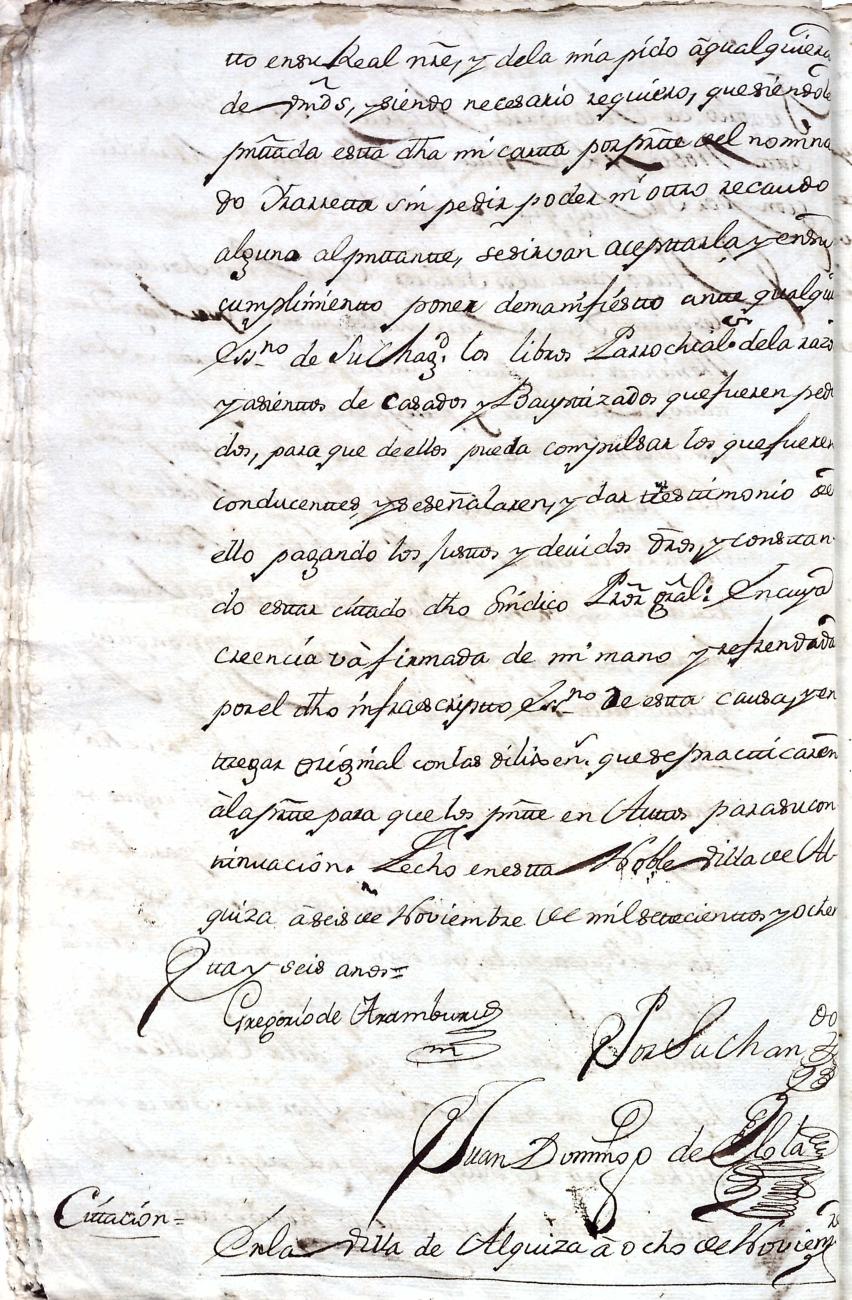 tto en su Real nre, y de la mia pido à qualquiera
de vmds, y siendo necesario requiero, que siendole
pnttada estta dha mi cartta por partte del nomina
do Yrarretta sin pedir poder ni ottro recaudo
alguno al pnttantte, se sirvan aceptarla y en su
cumplimientto poner de manifiestto antte qualqui
Essno de Su Md los libros Parrochiales de la razo
y asienttos de Casados y Bauptizados que fueren pedi
dos, para que de ellos pueda compulsar los que fueren
conducenttes, y se señalaren, y dar testtimonio de
ello pagando los justtos y devidos dros, y consttan
do esttar cittado dho Sindico Pror gral: En cuya
creencia và firmada de mi mano y refrendada
por el dho infrascriptto Essno de estta causa, y en
ttregar original con las dilixen. que se practticaren
à la partte para que los pntte en Auttos para su con
ttinuación. Fecho en estta Noble Villa de Al
quiza à seis de Noviembre de mil settecienttos y ochen
tta y seis anos=
Gregorio de Aramburu
Por Su
Juan Domingo de
Cittación=
En la Villa de Alquiza à ocho de Noviem